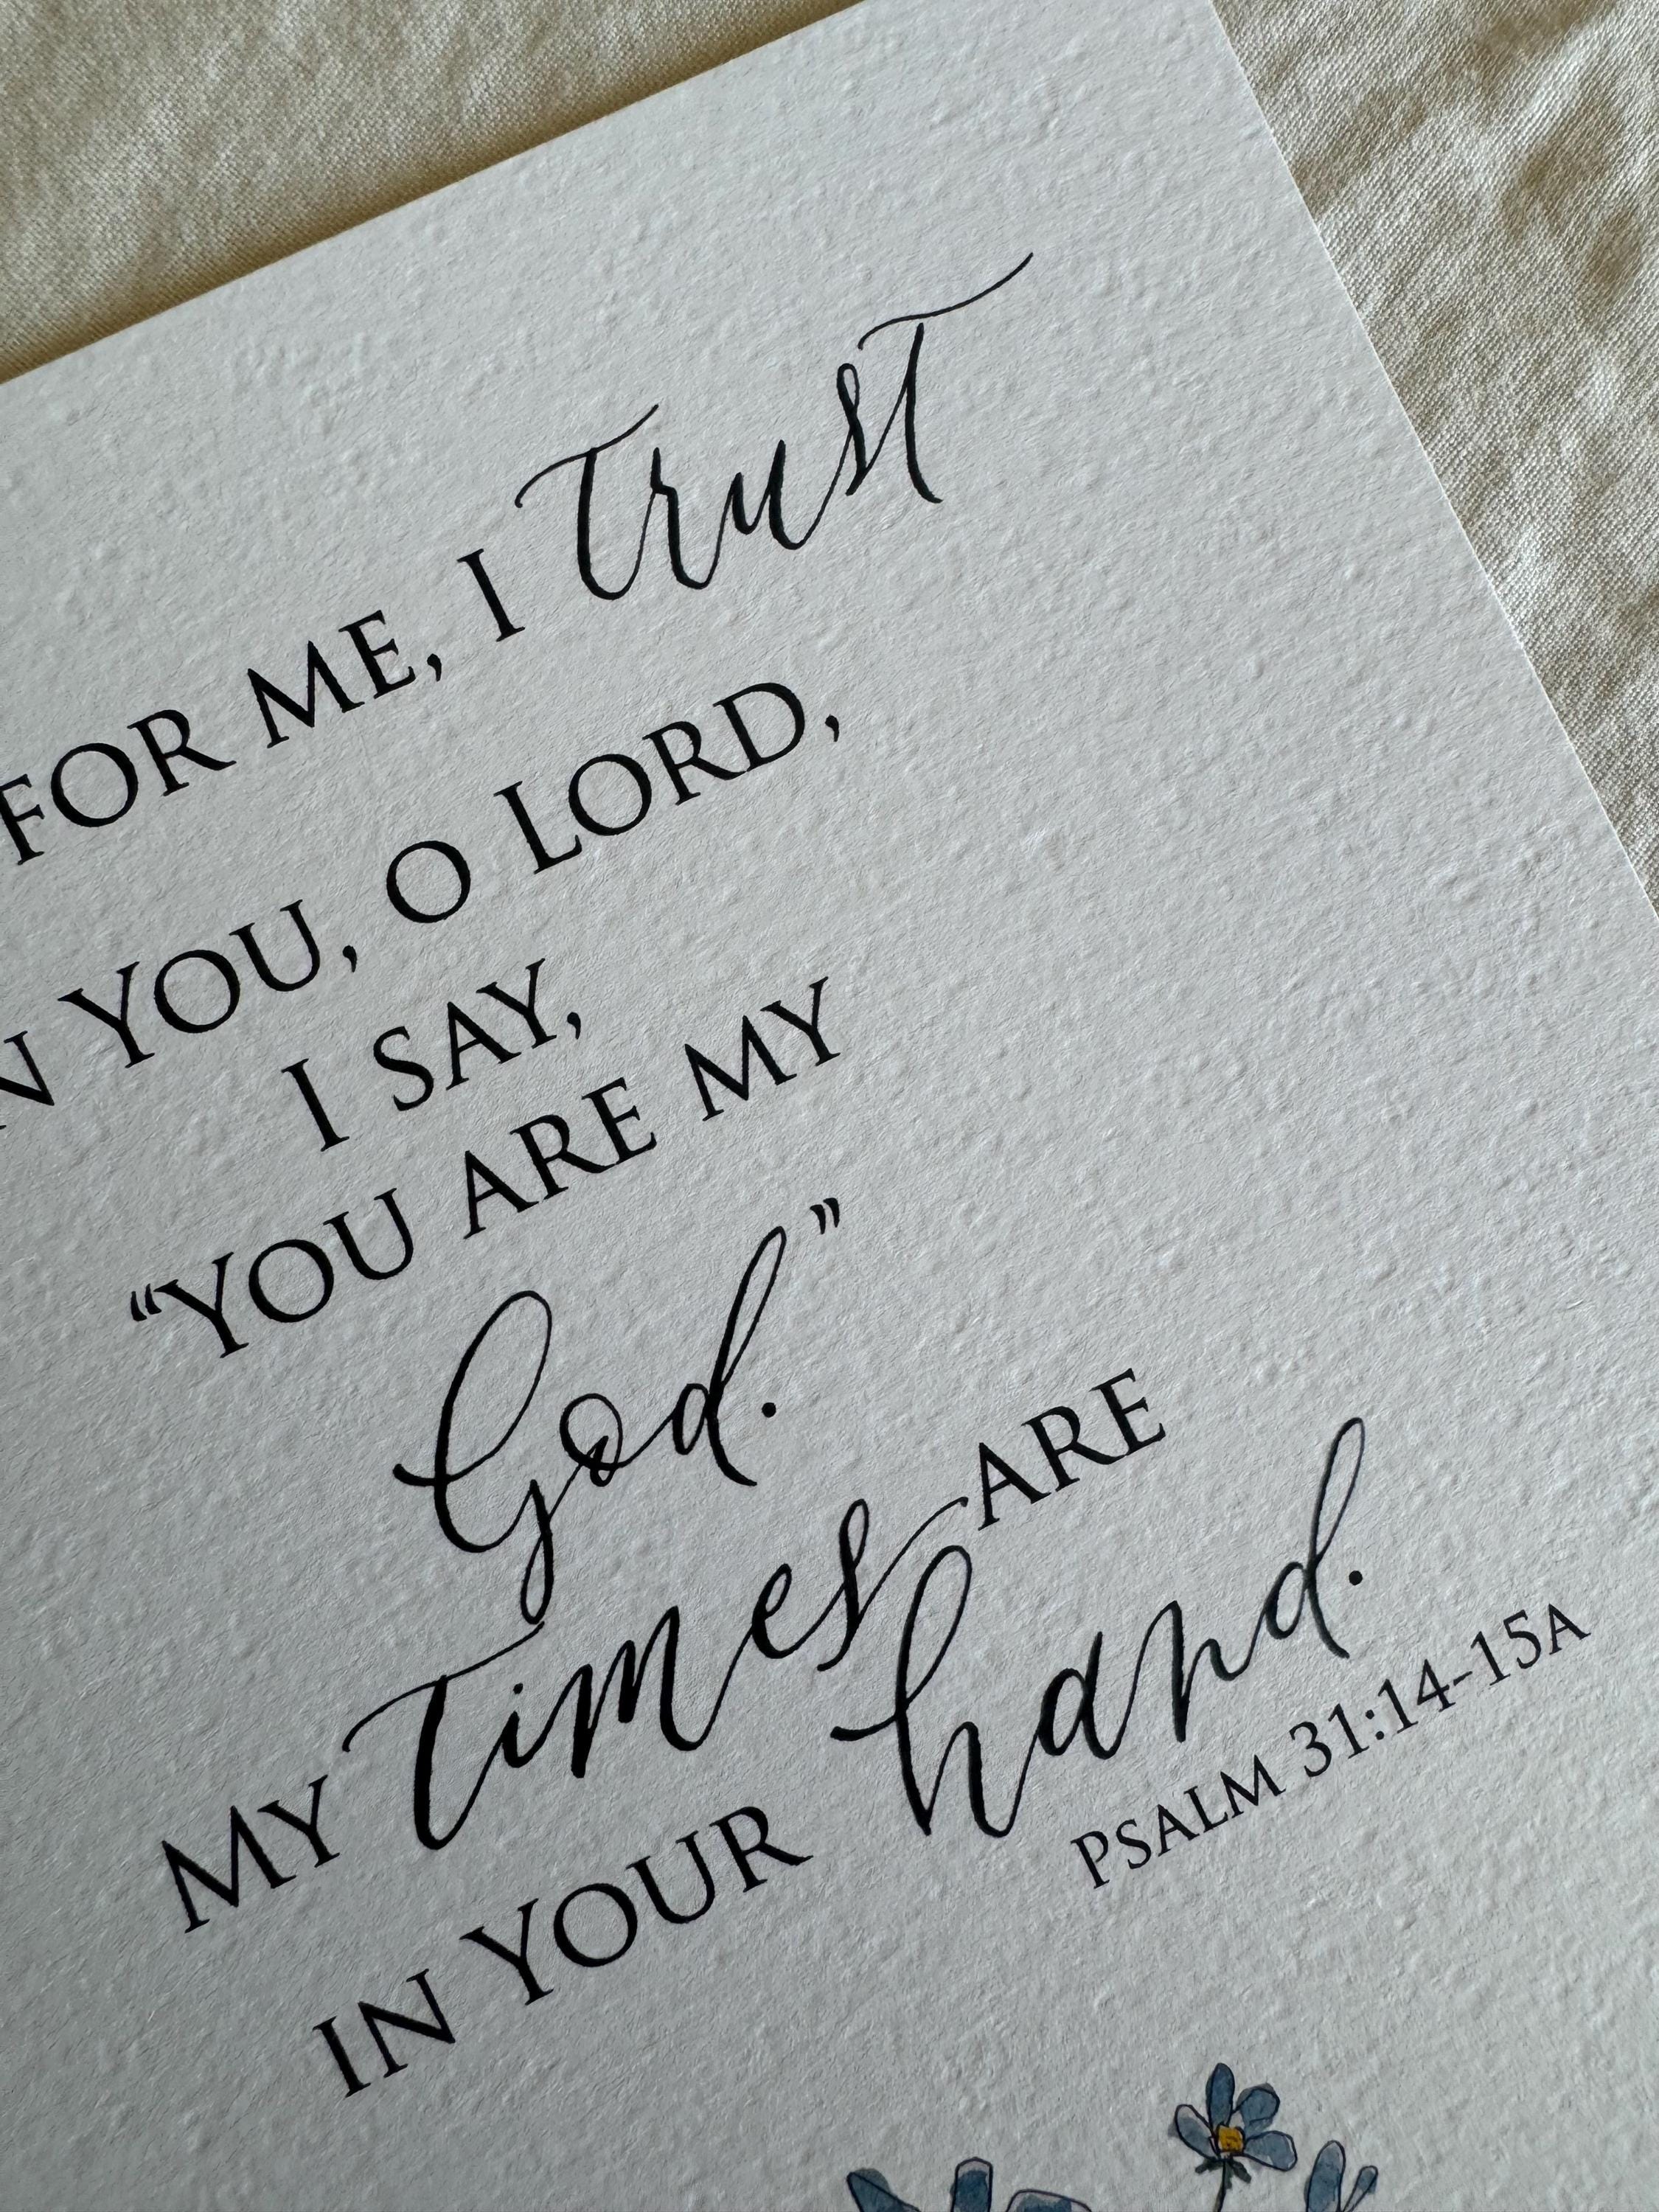 FOR ME, I Trust
N YOU, O LORD,
I SAY,
“YOU ARE MY
God.”
MY Times ARE
IN YOUR hand.
PSALM 31:14-15A